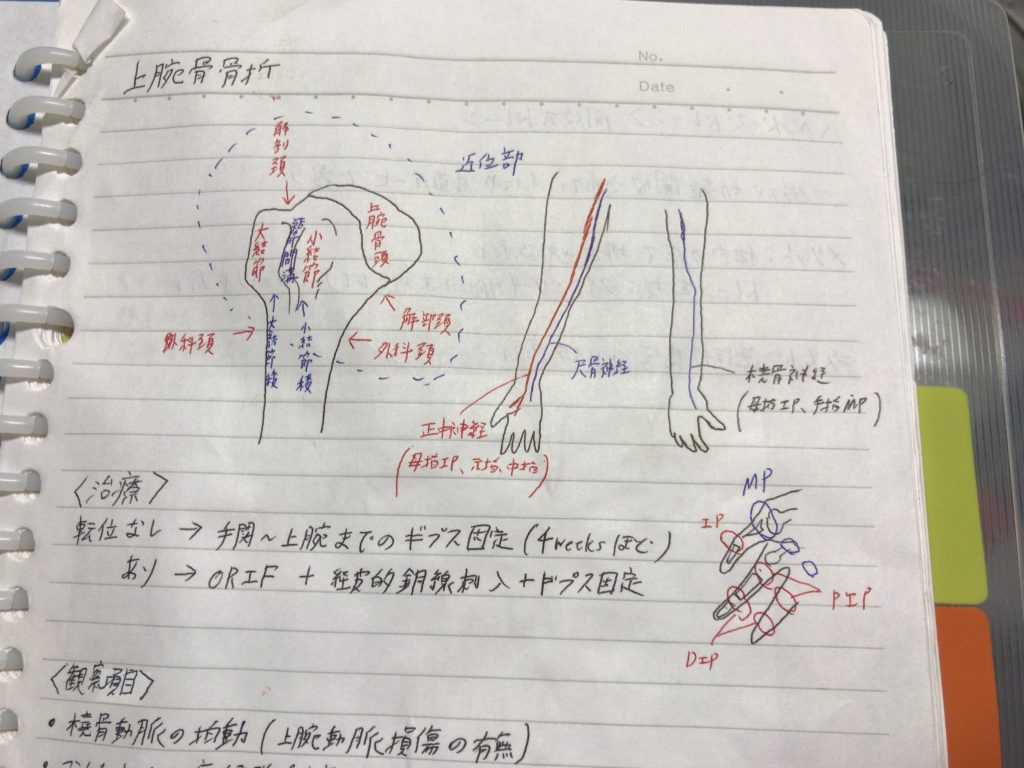 No.
Date
上腕骨骨折
近位部
解剖頚
大結節
結節間溝
小結節
上腕骨頭
大結節稜
小結節稜
外科頚
解剖頚
外科頚
尺骨神経
正中神経
(母指IP、示指、中指)
橈骨神経
(母指IP、手指MP)
<治療>
転位なし → 手関~上腕までのギプス固定(4weeksほど)
あり → ORIF + 経皮的鋼線刺入+ギプス固定
MP
IP
PIP
DIP
<観察項目>
・橈骨動脈の拍動(上腕動脈損傷の有無)